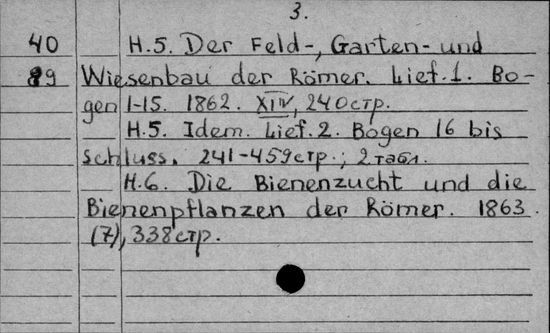 3.
40 H.5. Der Feld-, Garten- und
89 Wiesenbau der Römer. Lief.1. Bo-
gen 1-15. 1862. XIV, 240стр.
H.5. Idem. Lief.2. Bogen 16 bis
Schluss. 241-459стр.; 2табл.
H.6. Die Bienenzucht und die
Bienenpflanzen der Römer. 1863.
(7), 338стр.